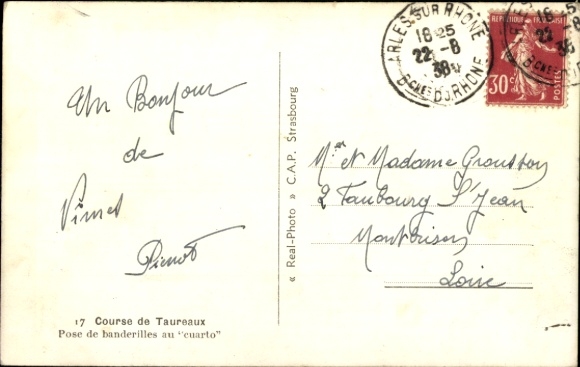 ARLES-SUR-RHONE
18 25
22 -8
38
BCHES DU RHONE
REPUBLIQUE FRANÇAISE
30c
POSTES
18 25
22 -8
38
Un Bonjour
de
« Real-Photo » C.A.P. Strasbourg
Mr et Madame Grousson
2 Faubourg St Jean
Montbrison
Loire
17 Course de Taureaux
Pose de banderilles au "cuarto"